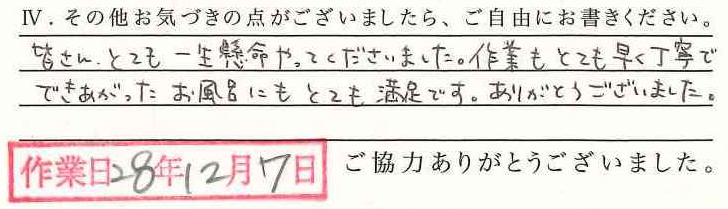 Ⅳ．その他お気づきの点がございましたら、ご自由にお書きください。
皆さん、とても一生懸命やってくださいました。作業もとても早く丁寧で
できあがったお風呂にもとても満足です。ありがとうございました。
作業日28年12月7日
ご協力ありがとうございました。